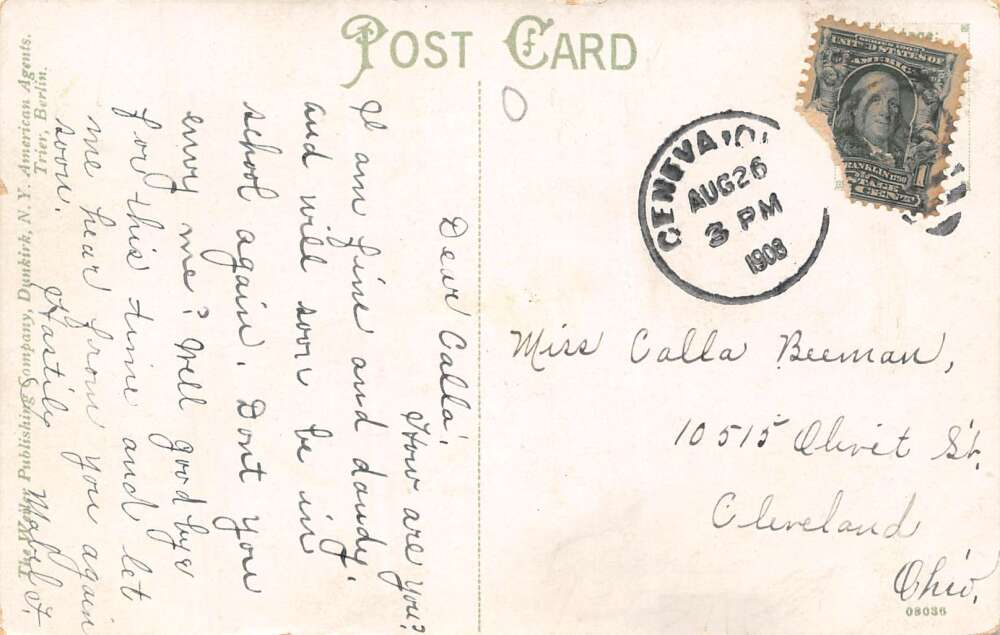 POST CARD
SERIES 1902
UNITED STATES OF
AMERIC
FRANKLIN
1
CENT
GENEVA, O.
AUG 26
3 PM
1908
Dear Calla!
How are you?
I am fine and dandy.
and will soon be in
school again. Dont you
envy me? Well good bye
for this time and let
me hear from you again
soon.
Hastily
Miss Calla Beeman,
10515 Olivet St.
Cleveland
Ohio.
08036
Publishing Company, Dunkirk, N. Y. American Agents.
Trier, Berlin.